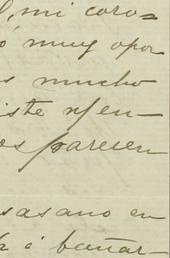 , mi coro=
ó muy opor
s mucho
iste
os parecen
sasano en
á bañar-